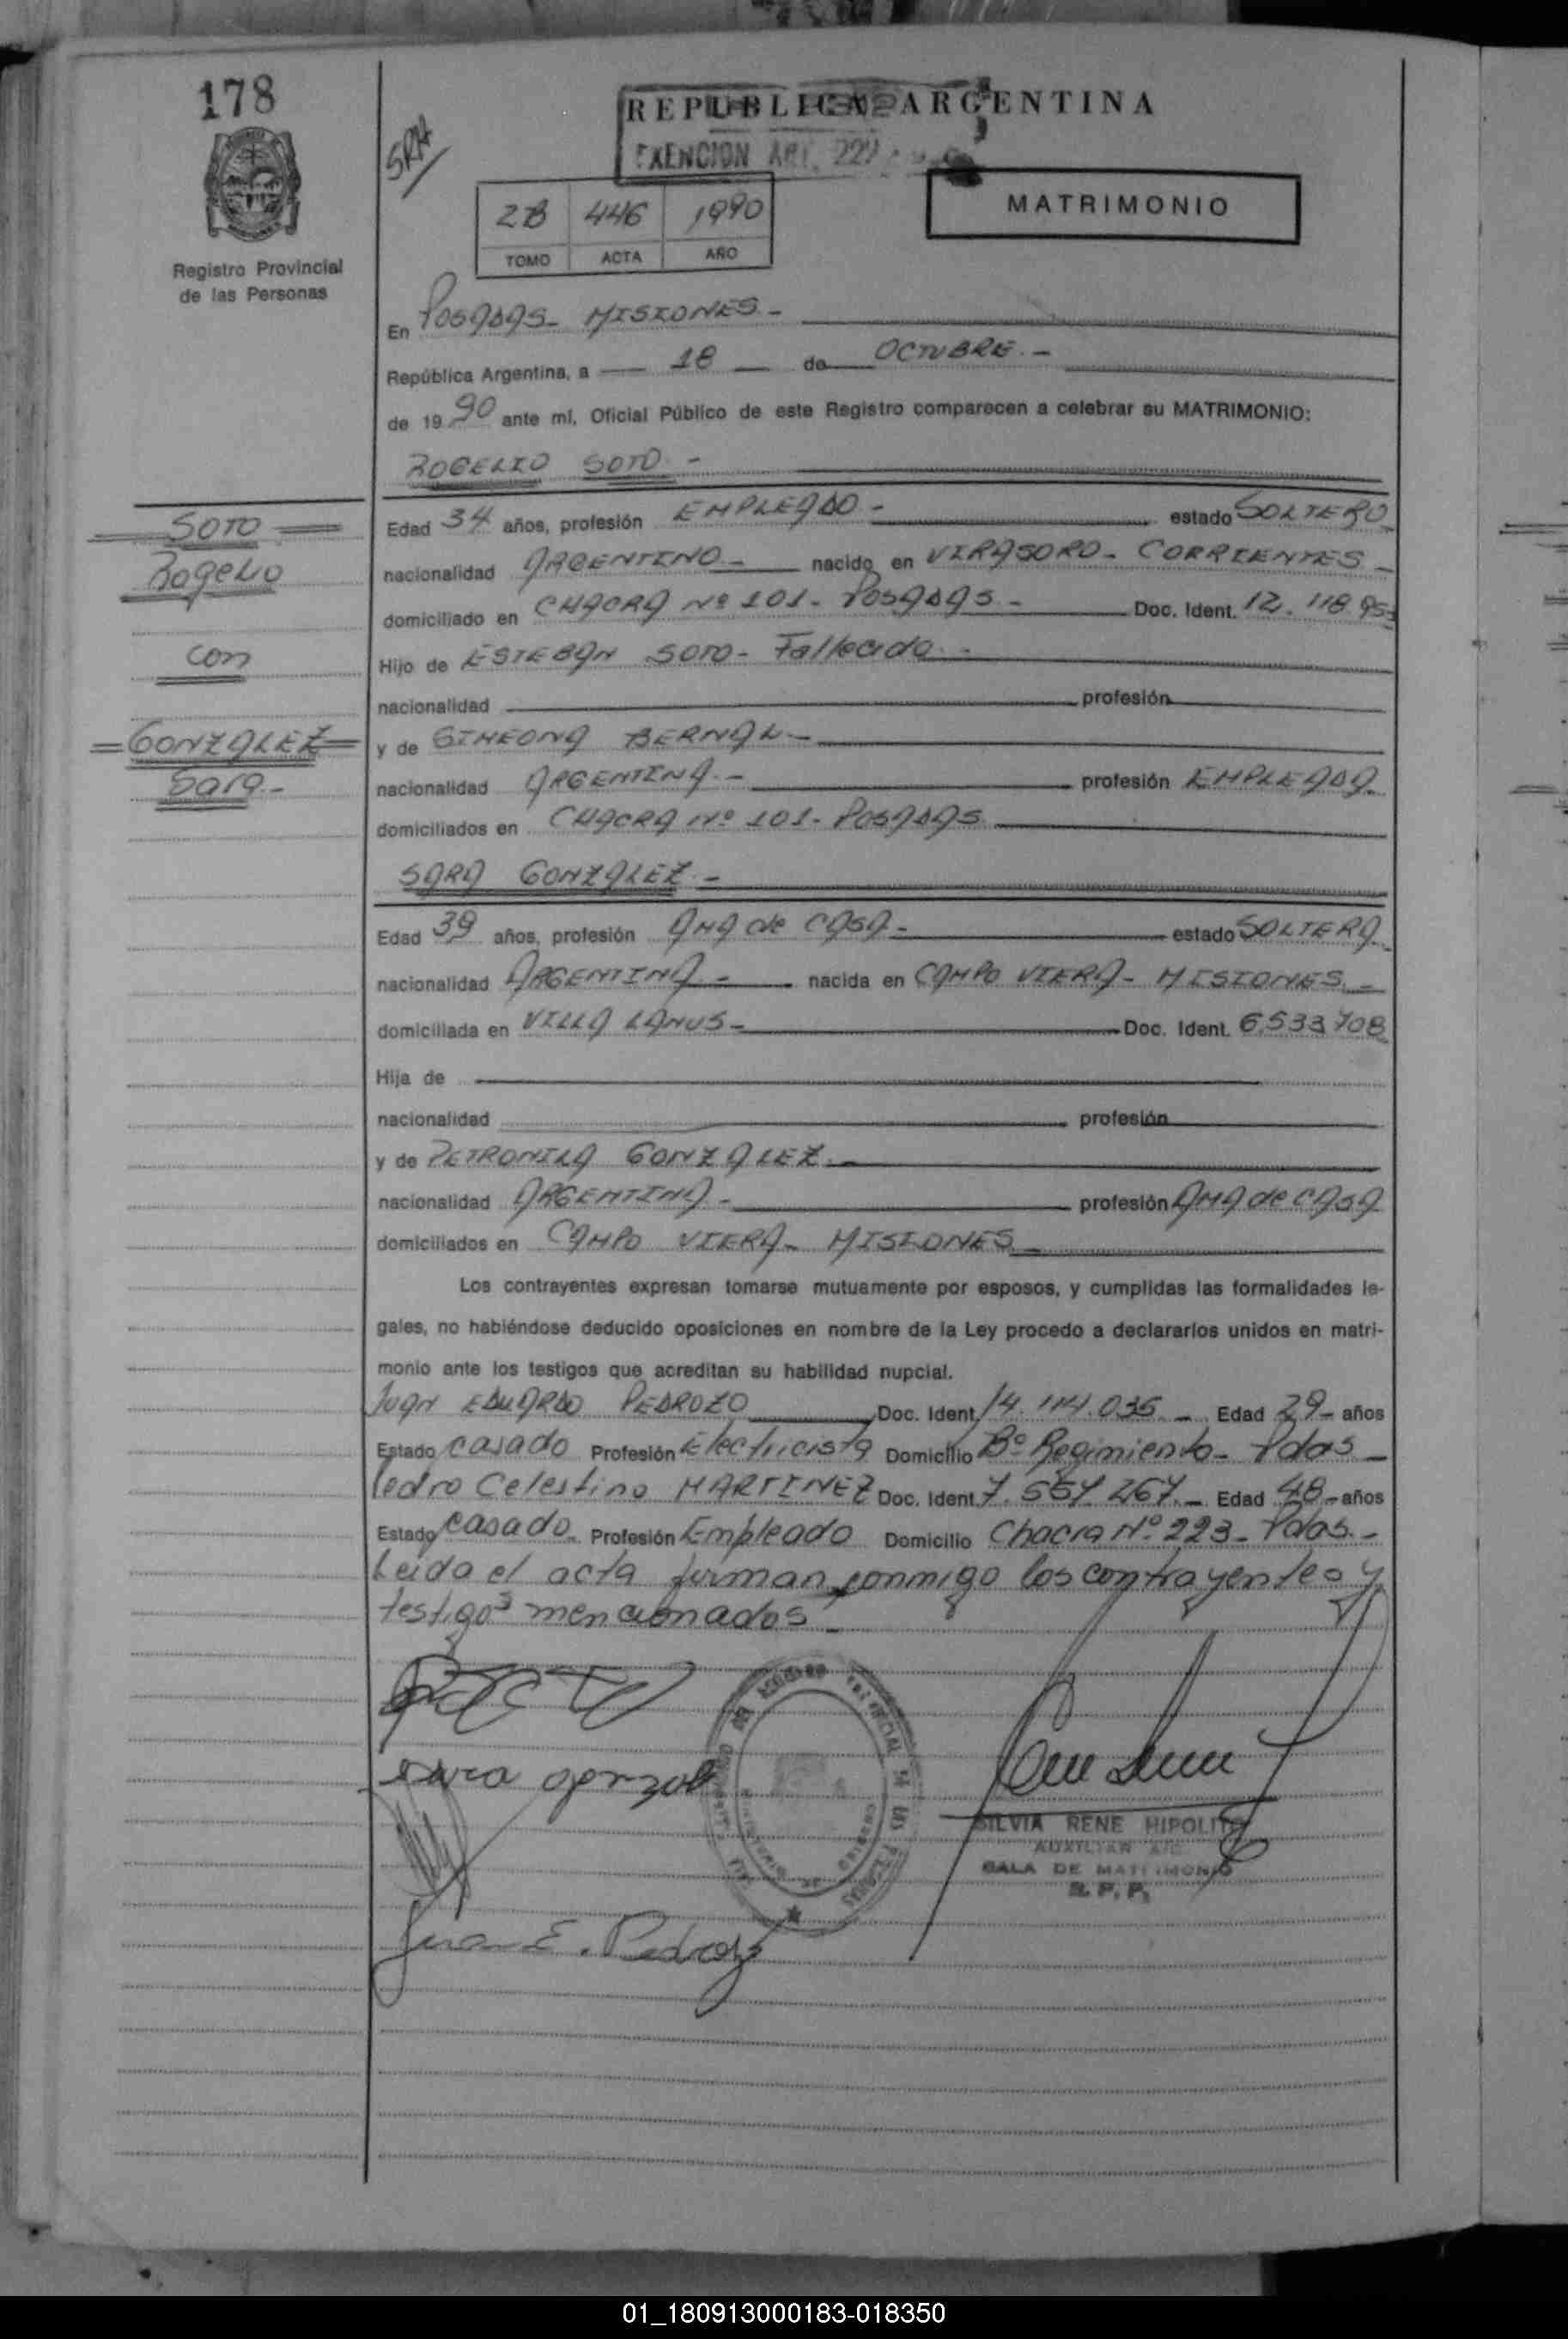 178
REPUBLICA ARGENTINA
SRH
EXENCION ART. 229
2B 446 1990
TOMO ACTA AÑO
MATRIMONIO
Registro Provincial
de las Personas
En POSADAS - MISIONES -
República Argentina, a 18 de OCTUBRE. -
de 1990 ante mí, Oficial Público de este Registro comparecen a celebrar su MATRIMONIO:
ROGELIO SOTO -
SOTO
Rogelio
con
GONZALEZ
Sara.-
Edad 34 años, profesión EMPLEADO - estado SOLTERO
nacionalidad ARGENTINO - nacido en VIRASORO - CORRIENTES -
domiciliado en CHACRA Nº 101 - POSADAS - Doc. Ident. 12.118.953
Hijo de ESTEBAN SOTO - Fallecido -
nacionalidad profesión
y de SIMEONA BERNAL -
nacionalidad ARGENTINA. - profesión EMPLEADA
domiciliados en CHACRA Nº 101 - POSADAS
SARA GONZALEZ -
Edad 39 años, profesión AMA de CASA - estado SOLTERA
nacionalidad ARGENTINA - nacida en CAMPO VIERA - MISIONES -
domiciliada en VILLA LANUS - Doc. Ident. 6.533.708
Hija de
nacionalidad profesión
y de PETRONILA GONZALEZ -
nacionalidad ARGENTINA - profesión AMA de CASA
domiciliados en CAMPO VIERA - MISIONES -
Los contrayentes expresan tomarse mutuamente por esposos, y cumplidas las formalidades le-
gales, no habiéndose deducido oposiciones en nombre de la Ley procedo a declararlos unidos en matri-
monio ante los testigos que acreditan su habilidad nupcial.
JUAN EDUARDO PEDROZO Doc. Ident. 14.114.035 - Edad 29 - años
Estado casado Profesión Electricista Domicilio Bº Regimiento - Pdas -
Pedro Celestino MARTINEZ Doc. Ident. 7.557.267. - Edad 48 - años
Estado casado - Profesión Empleado Domicilio Chacra Nº 223 - Pdas. -
Leida el acta firman conmigo los contrayentes y
testigos mencionados -
Sara gonzale
SILVIA RENE HIPOLITO
AUXILIAR
SALA DE MATRIMONIO
R. P. P.
Juan E. Pedrozo
01_180913000183-018350